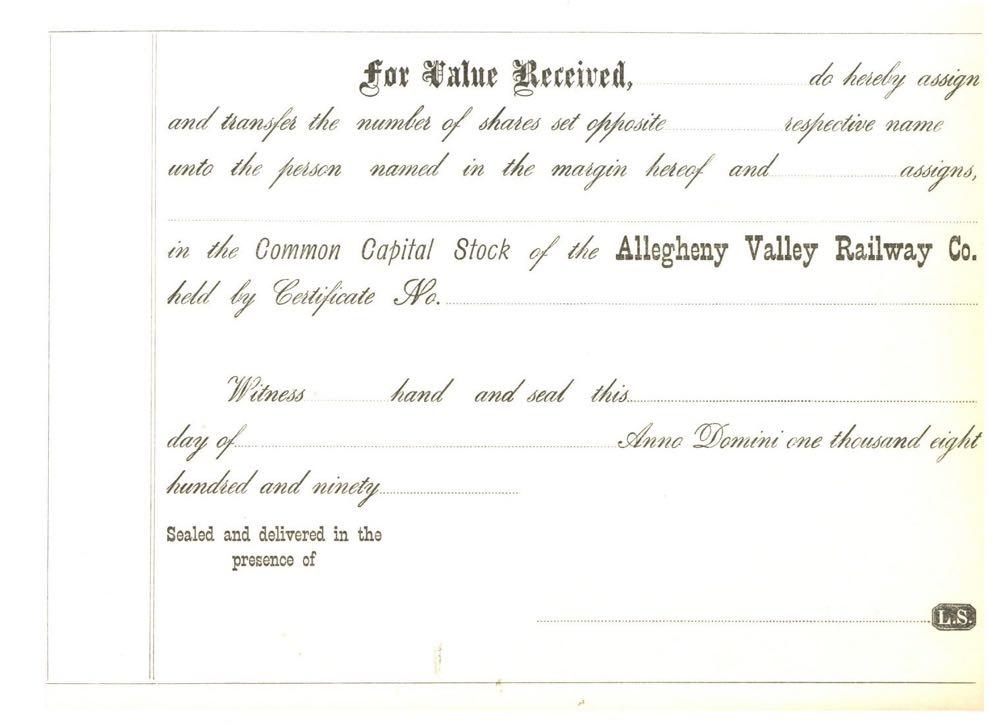 For Value Received, do hereby assign
and transfer the number of shares set opposite respective name
unto the person named in the margin hereof and assigns,
in the Common Capital Stock of the Allegheny Valley Railway Co.
held by Certificate No.
Witness hand and seal this
day of Anno Domini one thousand eight
hundred and ninety
Sealed and delivered in the
presence of
L.S.